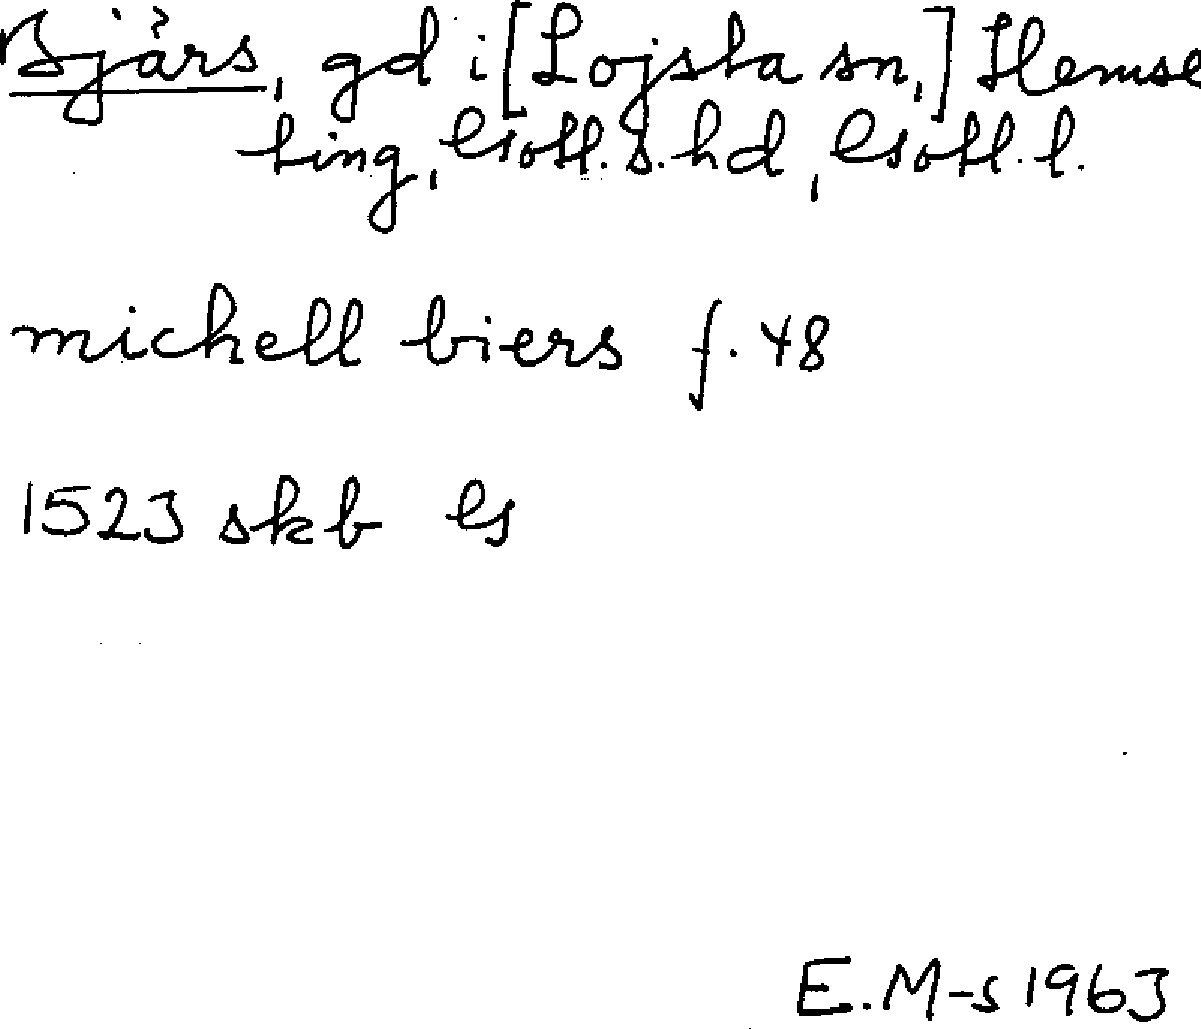 Bjärs, gd i [Lojsta sn,] Hemse
ting, Gotl. s. hd, Gotl. l.
michell biers f. 48
1523 skb G
E.M-s 1963